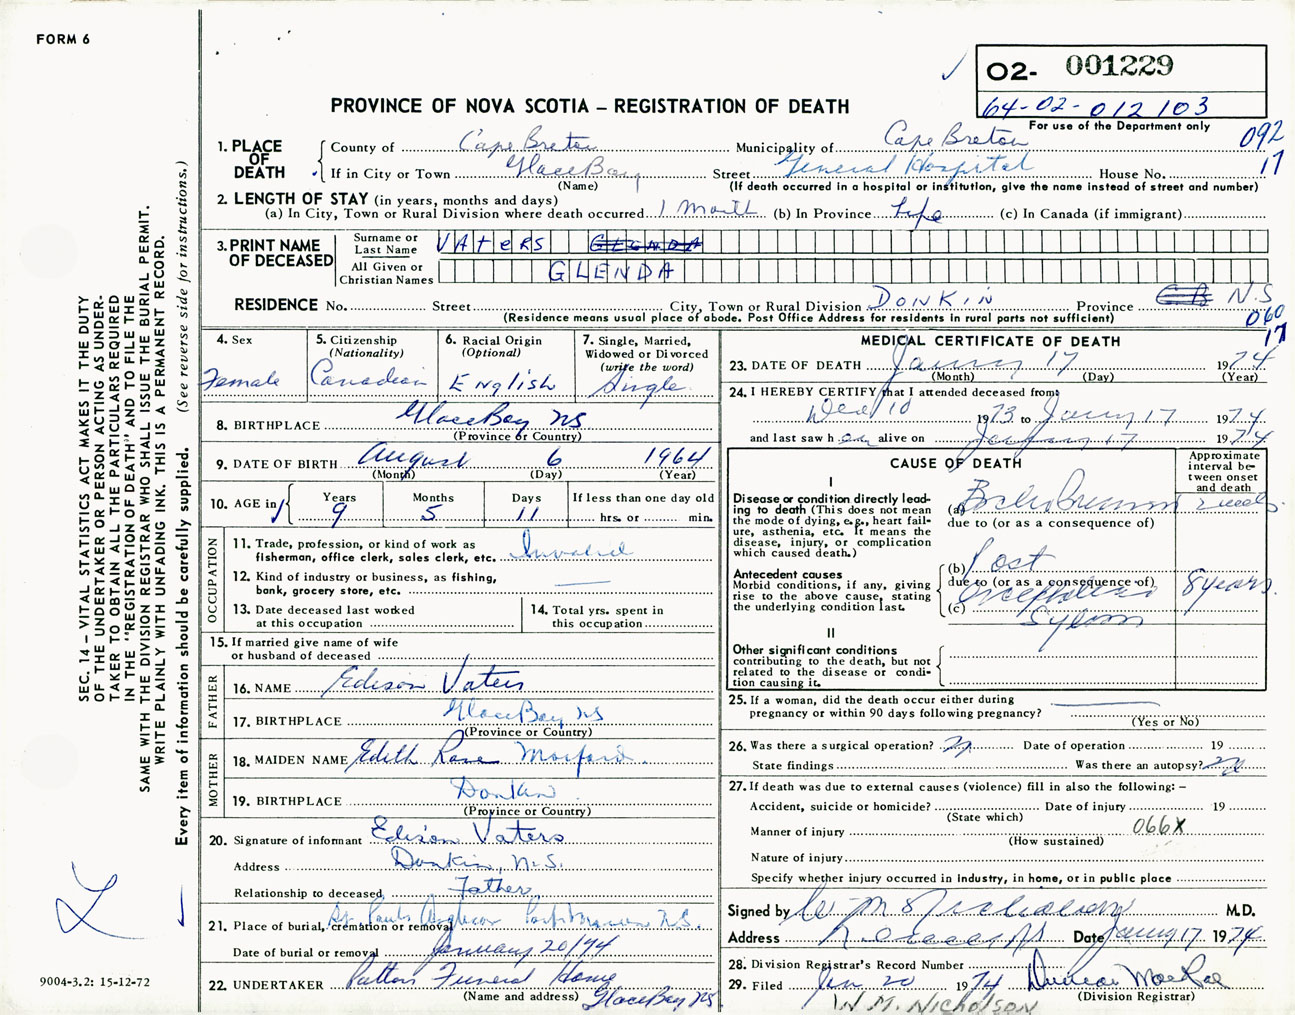 FORM 6
O2- 001229
64-02-012103
For use of the Department only
PROVINCE OF NOVA SCOTIA – REGISTRATION OF DEATH
092
17
1. PLACE OF DEATH
County of Cape Breton Municipality of Cape Breton
If in City or Town Glace Bay Street General Hospital House No.
(Name) (If death occurred in a hospital or institution, give the name instead of street and number)
2. LENGTH OF STAY (in years, months and days)
(a) In City, Town or Rural Division where death occurred 1 Month (b) In Province Life (c) In Canada (if immigrant)
3. PRINT NAME OF DECEASED
Surname or Last Name VATERS GLENDA
All Given or Christian Names GLENDA
RESIDENCE No. Street City, Town or Rural Division DONKIN Province C B N.S
(Residence means usual place of abode. Post Office Address for residents in rural parts not sufficient)
060
17
4. Sex Female
5. Citizenship (Nationality) Canadian
6. Racial Origin (Optional) English
7. Single, Married, Widowed or Divorced (write the word) Single
8. BIRTHPLACE Glace Bay NS
(Province or Country)
9. DATE OF BIRTH August 6 1964
(Month) (Day) (Year)
10. AGE in Years 9 Months 5 Days 11 If less than one day old hrs. or min.
OCCUPATION
11. Trade, profession, or kind of work as fisherman, office clerk, sales clerk, etc. Invalid
12. Kind of industry or business, as fishing, bank, grocery store, etc.
13. Date deceased last worked at this occupation
14. Total yrs. spent in this occupation
15. If married give name of wife or husband of deceased
FATHER
16. NAME Edison Vaters
17. BIRTHPLACE Glace Bay NS
(Province or Country)
MOTHER
18. MAIDEN NAME Edith Rose
19. BIRTHPLACE Donkin
(Province or Country)
20. Signature of informant Edison Vaters
Address Donkin, N.S.
Relationship to deceased Father
21. Place of burial, cremation or removal St. Pauls Anglican Port Morien N.S.
Date of burial or removal January 20/74
22. UNDERTAKER Patten Funeral Home
(Name and address) Glace Bay NS
MEDICAL CERTIFICATE OF DEATH
23. DATE OF DEATH January 17 1974
(Month) (Day) (Year)
24. I HEREBY CERTIFY that I attended deceased from:
Dec 10 1973 to January 17 1974
and last saw her alive on January 17 1974
CAUSE OF DEATH
Approximate interval between onset and death
I
Disease or condition directly leading to death (This does not mean the mode of dying, e.g., heart failure, asthenia, etc. It means the disease, injury, or complication which caused death.)
(a) 2 weeks
due to (or as a consequence of)
Antecedent causes
Morbid conditions, if any, giving rise to the above cause, stating the underlying condition last.
(b) Post
due to (or as a consequence of)
(c) 8 years
II
Other significant conditions contributing to the death, but not related to the disease or condition causing it.
25. If a woman, did the death occur either during pregnancy or within 90 days following pregnancy?
(Yes or No)
26. Was there a surgical operation? Date of operation 19
State findings Was there an autopsy?
27. If death was due to external causes (violence) fill in also the following: –
Accident, suicide or homicide? Date of injury 19
(State which)
Manner of injury 066X
(How sustained)
Nature of injury
Specify whether injury occurred in industry, in home, or in public place
Signed by W M Nicholson M.D.
Address Date January 17 1974
28. Division Registrar's Record Number
29. Filed Jan 20 1974 Duncan MacRae
(Division Registrar)
W. M. NICHOLSON
SEC. 14 – VITAL STATISTICS ACT MAKES IT THE DUTY
OF THE UNDERTAKER OR PERSON ACTING AS UNDER-
TAKER TO OBTAIN ALL THE PARTICULARS REQUIRED
IN THE "REGISTRATION OF DEATH" AND TO FILE THE
SAME WITH THE DIVISION REGISTRAR WHO SHALL ISSUE THE BURIAL PERMIT.
WRITE PLAINLY WITH UNFADING INK. THIS IS A PERMANENT RECORD.
Every item of information should be carefully supplied. (See reverse side for instructions.)
9004-3.2: 15-12-72